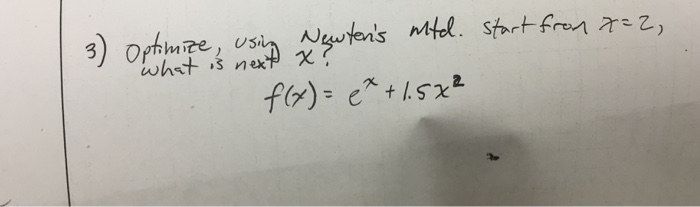 3) Optimize, using Newton's mtd. start from x=2,
what is next x?
f(x) = e^x + 1.5x^2